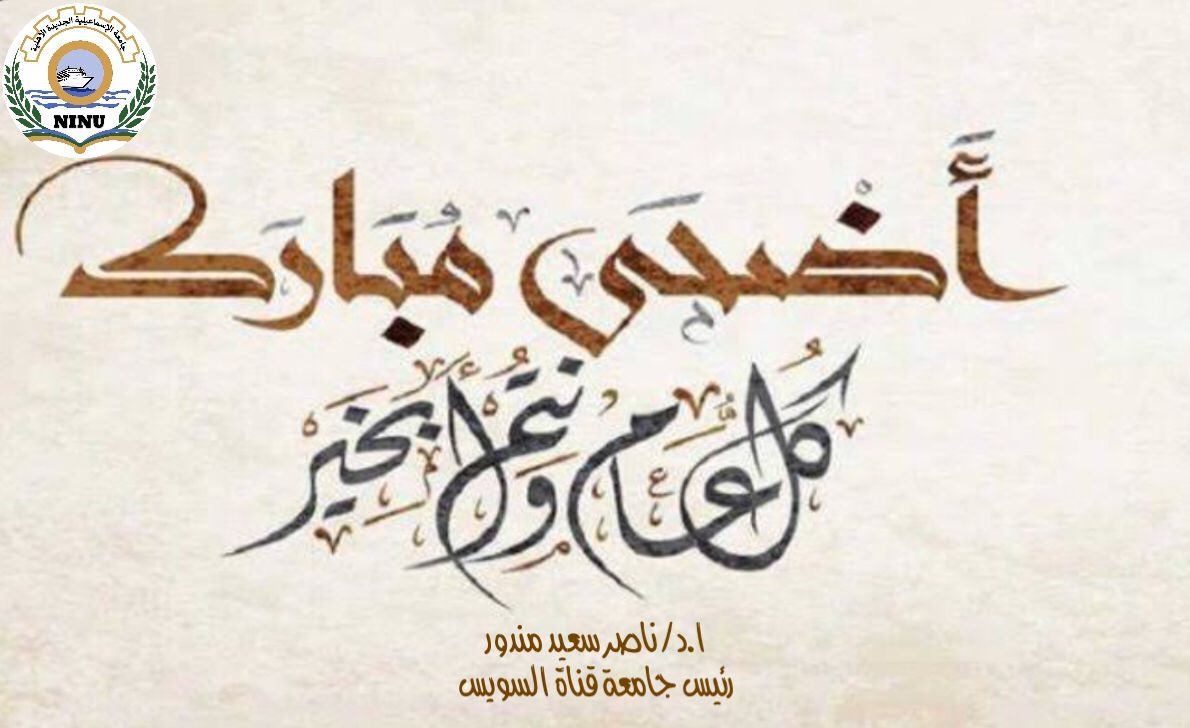 جامعة الإسماعيلية الجديدة الأهلية
NINU
أَضحَى مُبَارَك
كُل عَام وَأنتُم بِخَيْر
ا.د/ ناصر سعيد مندور
رئيس جامعة قناة السويس